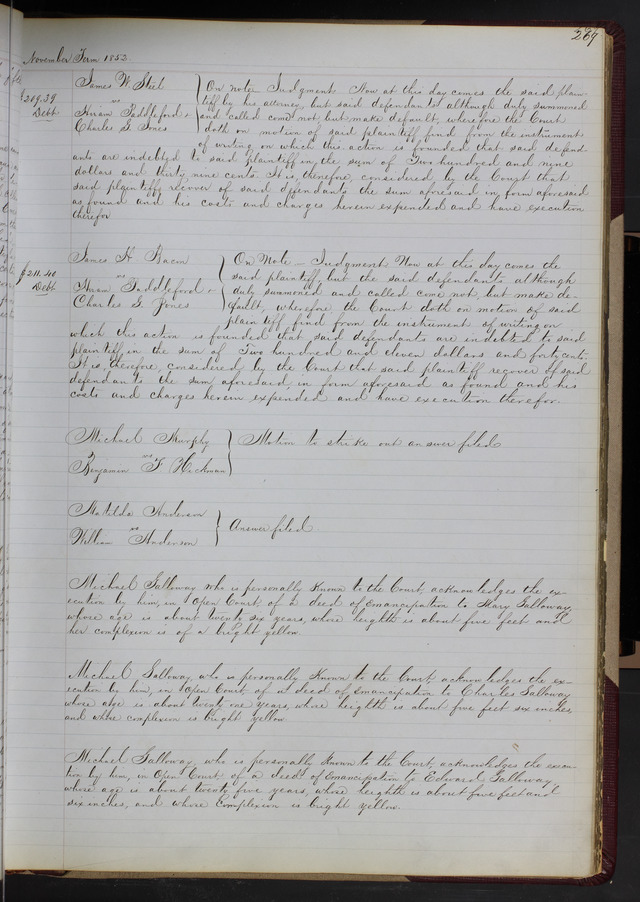 269
November Term 1853.
James W Steel
vs
Hiram Paddleford &
Charles G. Jones
$209.39
Debt
On note Judgment Now at this day comes the said plain-
tiff by his attorney, but said defendants although duly summoned
and called come not, but make default, wherefore the Court
doth on motion of said plaintiff find from the instrument
of writing on which this action is founded that said defend
ants are indebted to said plaintiff in the sum of Two hundred and nine
dollars and thirty nine cents. It is, therefore, considered by the Court that
said plaintiff recover of said defendants the sum aforesaid in form aforesaid
as found and his costs and charges herein expended and have execution
therefor
James H Bacon
vs
Hiram Paddleford &
Charles G Jones
$211.40
Debt
On Note — Judgment Now at this day comes the
said plaintiff, but the said defendants although
duly summoned and called come not but make de-
fault, wherefore, the Court doth on motion of said
plaintiff find from the instrument of writing on
which this action is founded that said defendants are indebted to said
plaintiff in the sum of Two hundred and eleven dollars and forty cents.
It is, therefore, considered by the Court that said plaintiff recover of said
defendants the sum aforesaid in form aforesaid as found and his
costs and charges herein expended and have execution therefor.
Michael Murphy
vs
Benjamin F Hickman
Motion to strike out answer filed
Matilda Anderson
vs
William Anderson
Answer filed.
Michael Galloway, who is personally Known to the Court, acknowledges the ex-
ecution by him, in Open Court, of a deed of emancipation to Mary Galloway,
whose age is about twenty six years, whose heighth is about five feet and
her complexion is of a bright yellow.
Michael Galloway, who is personally Known to the Court, acknowledges the ex-
ecution by him, in Open Court, of a deed of emancipation to Charles Galloway
whose age is about twenty one years, whose heighth is about five feet six inches,
and whose complexion is bright yellow.
Michael Galloway, who is personally Known to the Court, acknowledges the execu-
tion by him, in Open Court, of a deed of Emancipation to Edward Galloway
whose age is about twenty five years, whose heighth is about five feet and
six inches, and whose complexion is bright yellow.